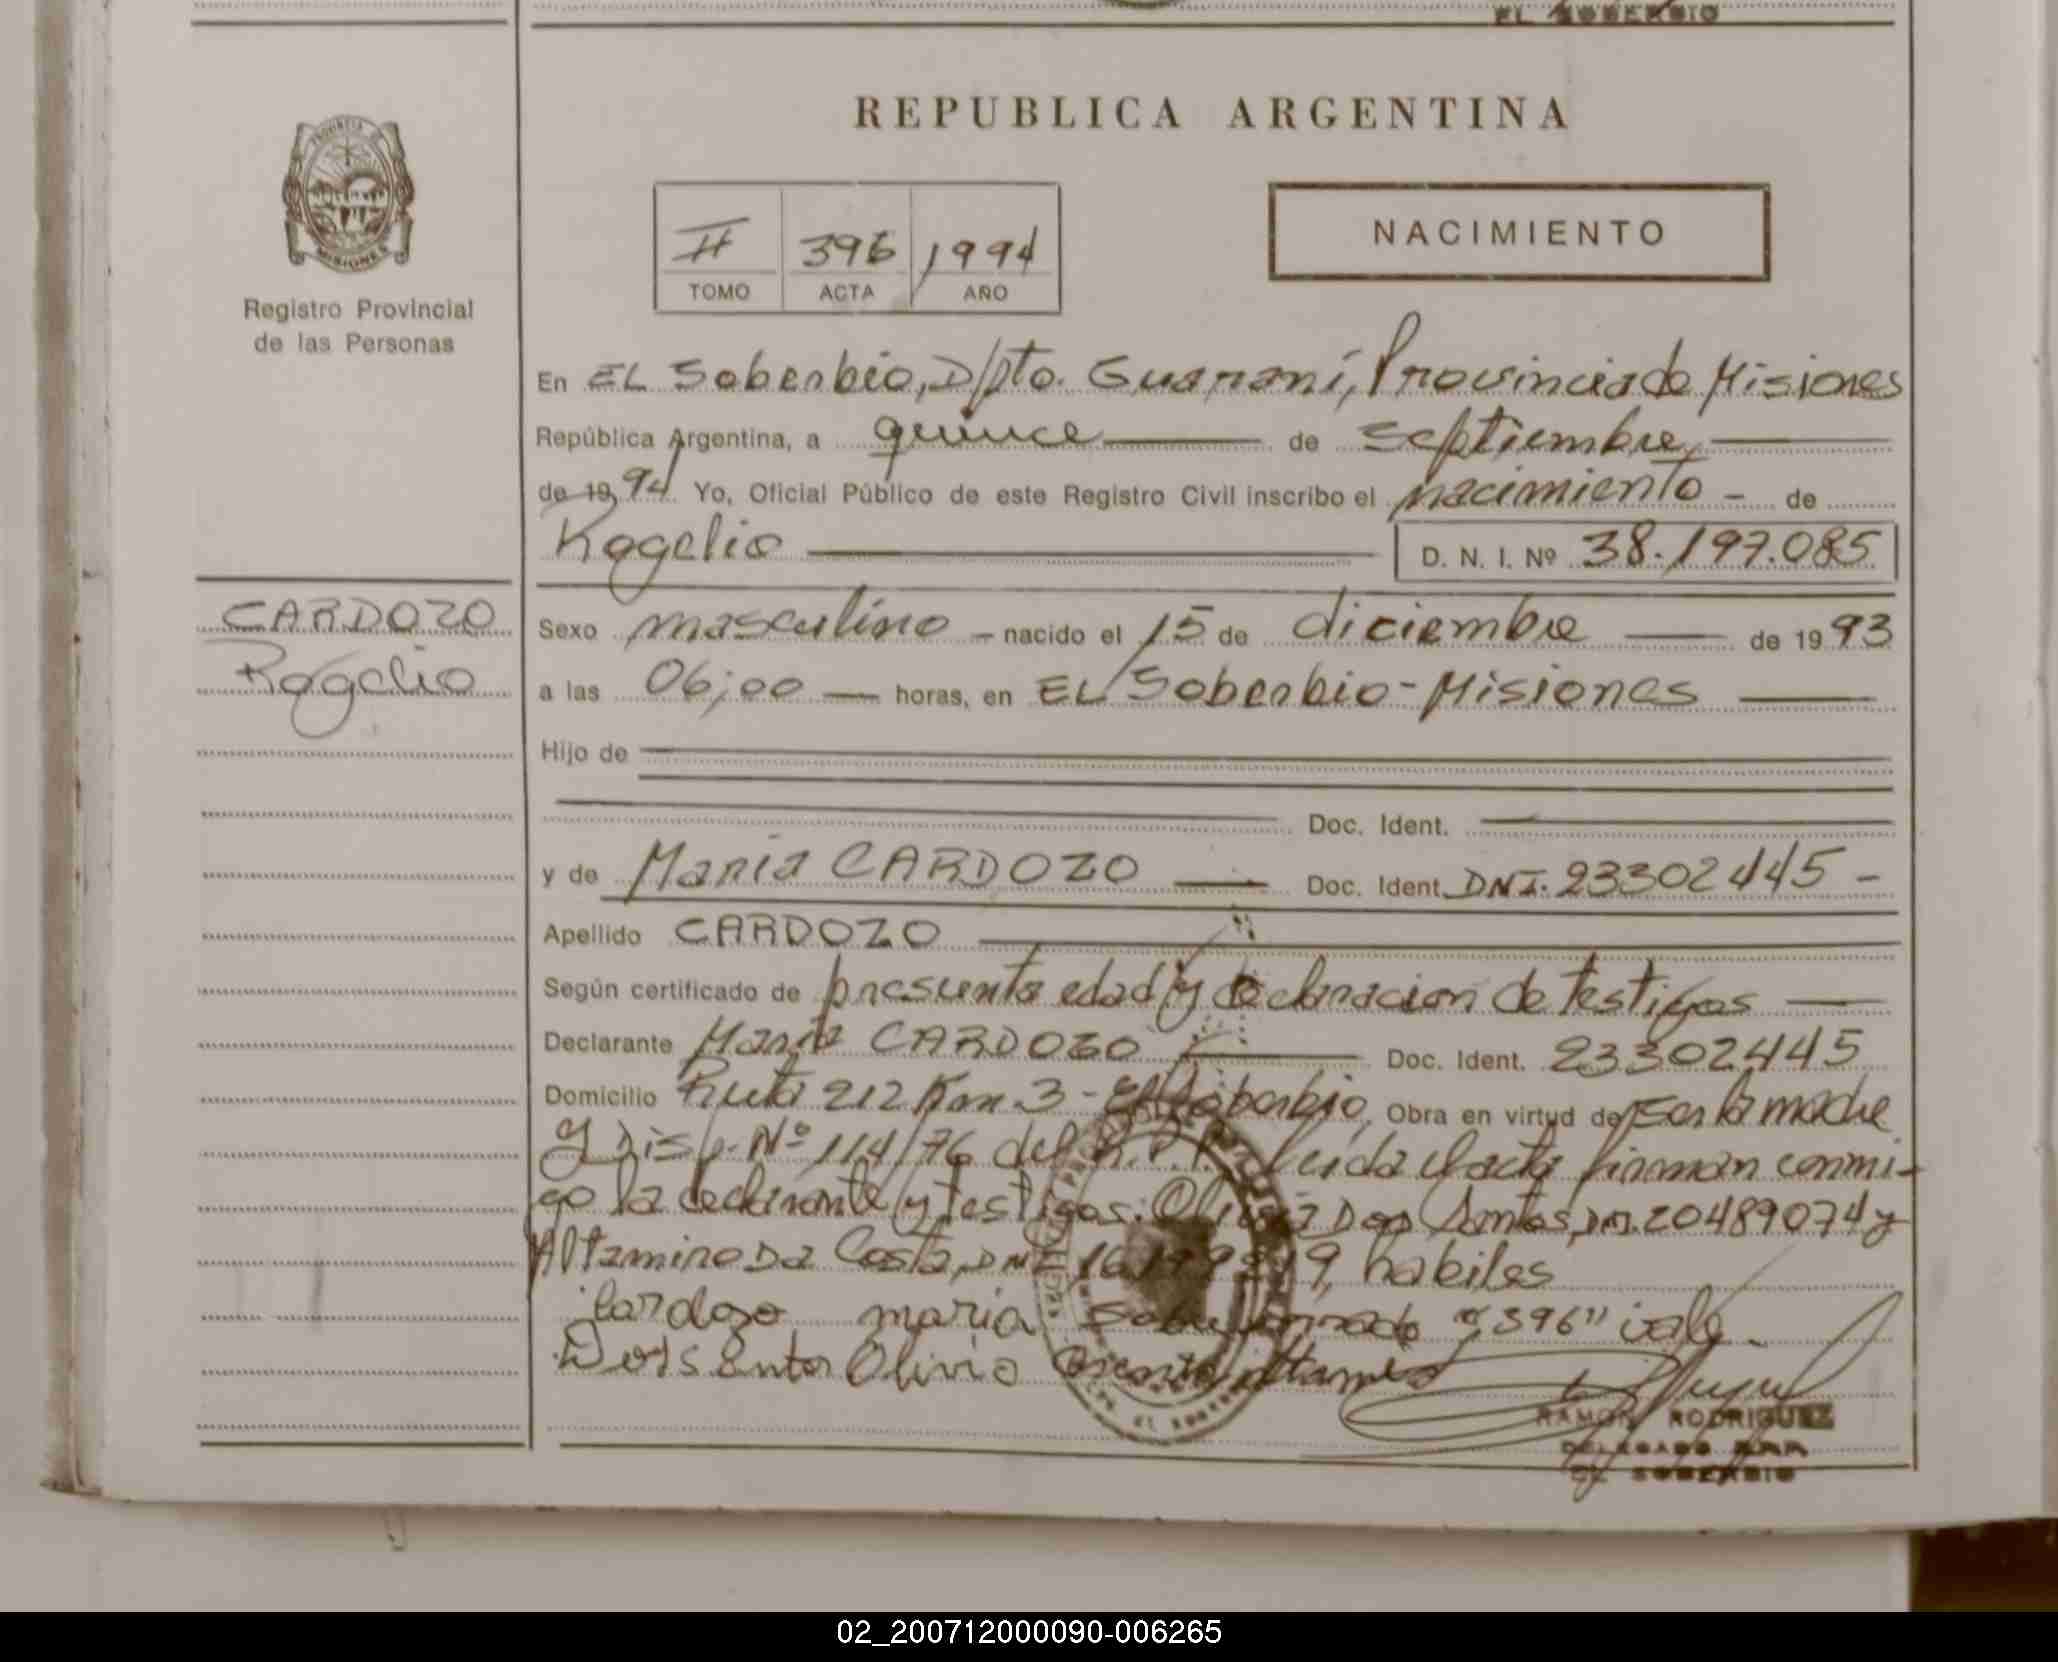 EL SOBERBIO
REPUBLICA ARGENTINA
PROVINCIA DE
MISIONES
Registro Provincial
de las Personas
II 396 1994
TOMO ACTA AÑO
NACIMIENTO
En EL Soberbio, D/pto. Guaraní, Provincia de Misiones
República Argentina, a quince de septiembre
de 1994 Yo, Oficial Público de este Registro Civil inscribo el nacimiento - de
Rogelio D. N. I. Nº 38.197.085
CARDOZO
Rogelio
Sexo masculino - nacido el 15 de diciembre de 1993
a las 06;00 horas, en EL Soberbio - Misiones
Hijo de
Doc. Ident.
y de María CARDOZO Doc. Ident. DNI. 23302445 -
Apellido CARDOZO
Según certificado de presunta edad y declaracion de testigos
Declarante María CARDOZO Doc. Ident. 23302445
Domicilio Ruta 212 Km 3 - El Soberbio, Obra en virtud de ser la madre
y Disp. Nº 114/76 del R.P.P. Leida el acta firman conmi-
go la declarante y testigos: Dos Santos, DNI. 20489074 y
Altamiro Da Costa, DNI habiles
Cardozo maria Sobreborrado "396" vale.
Dos Santos Olivio
RAMON RODRIGUEZ
DELEGADO
EL SOBERBIO
02_200712000090-006265